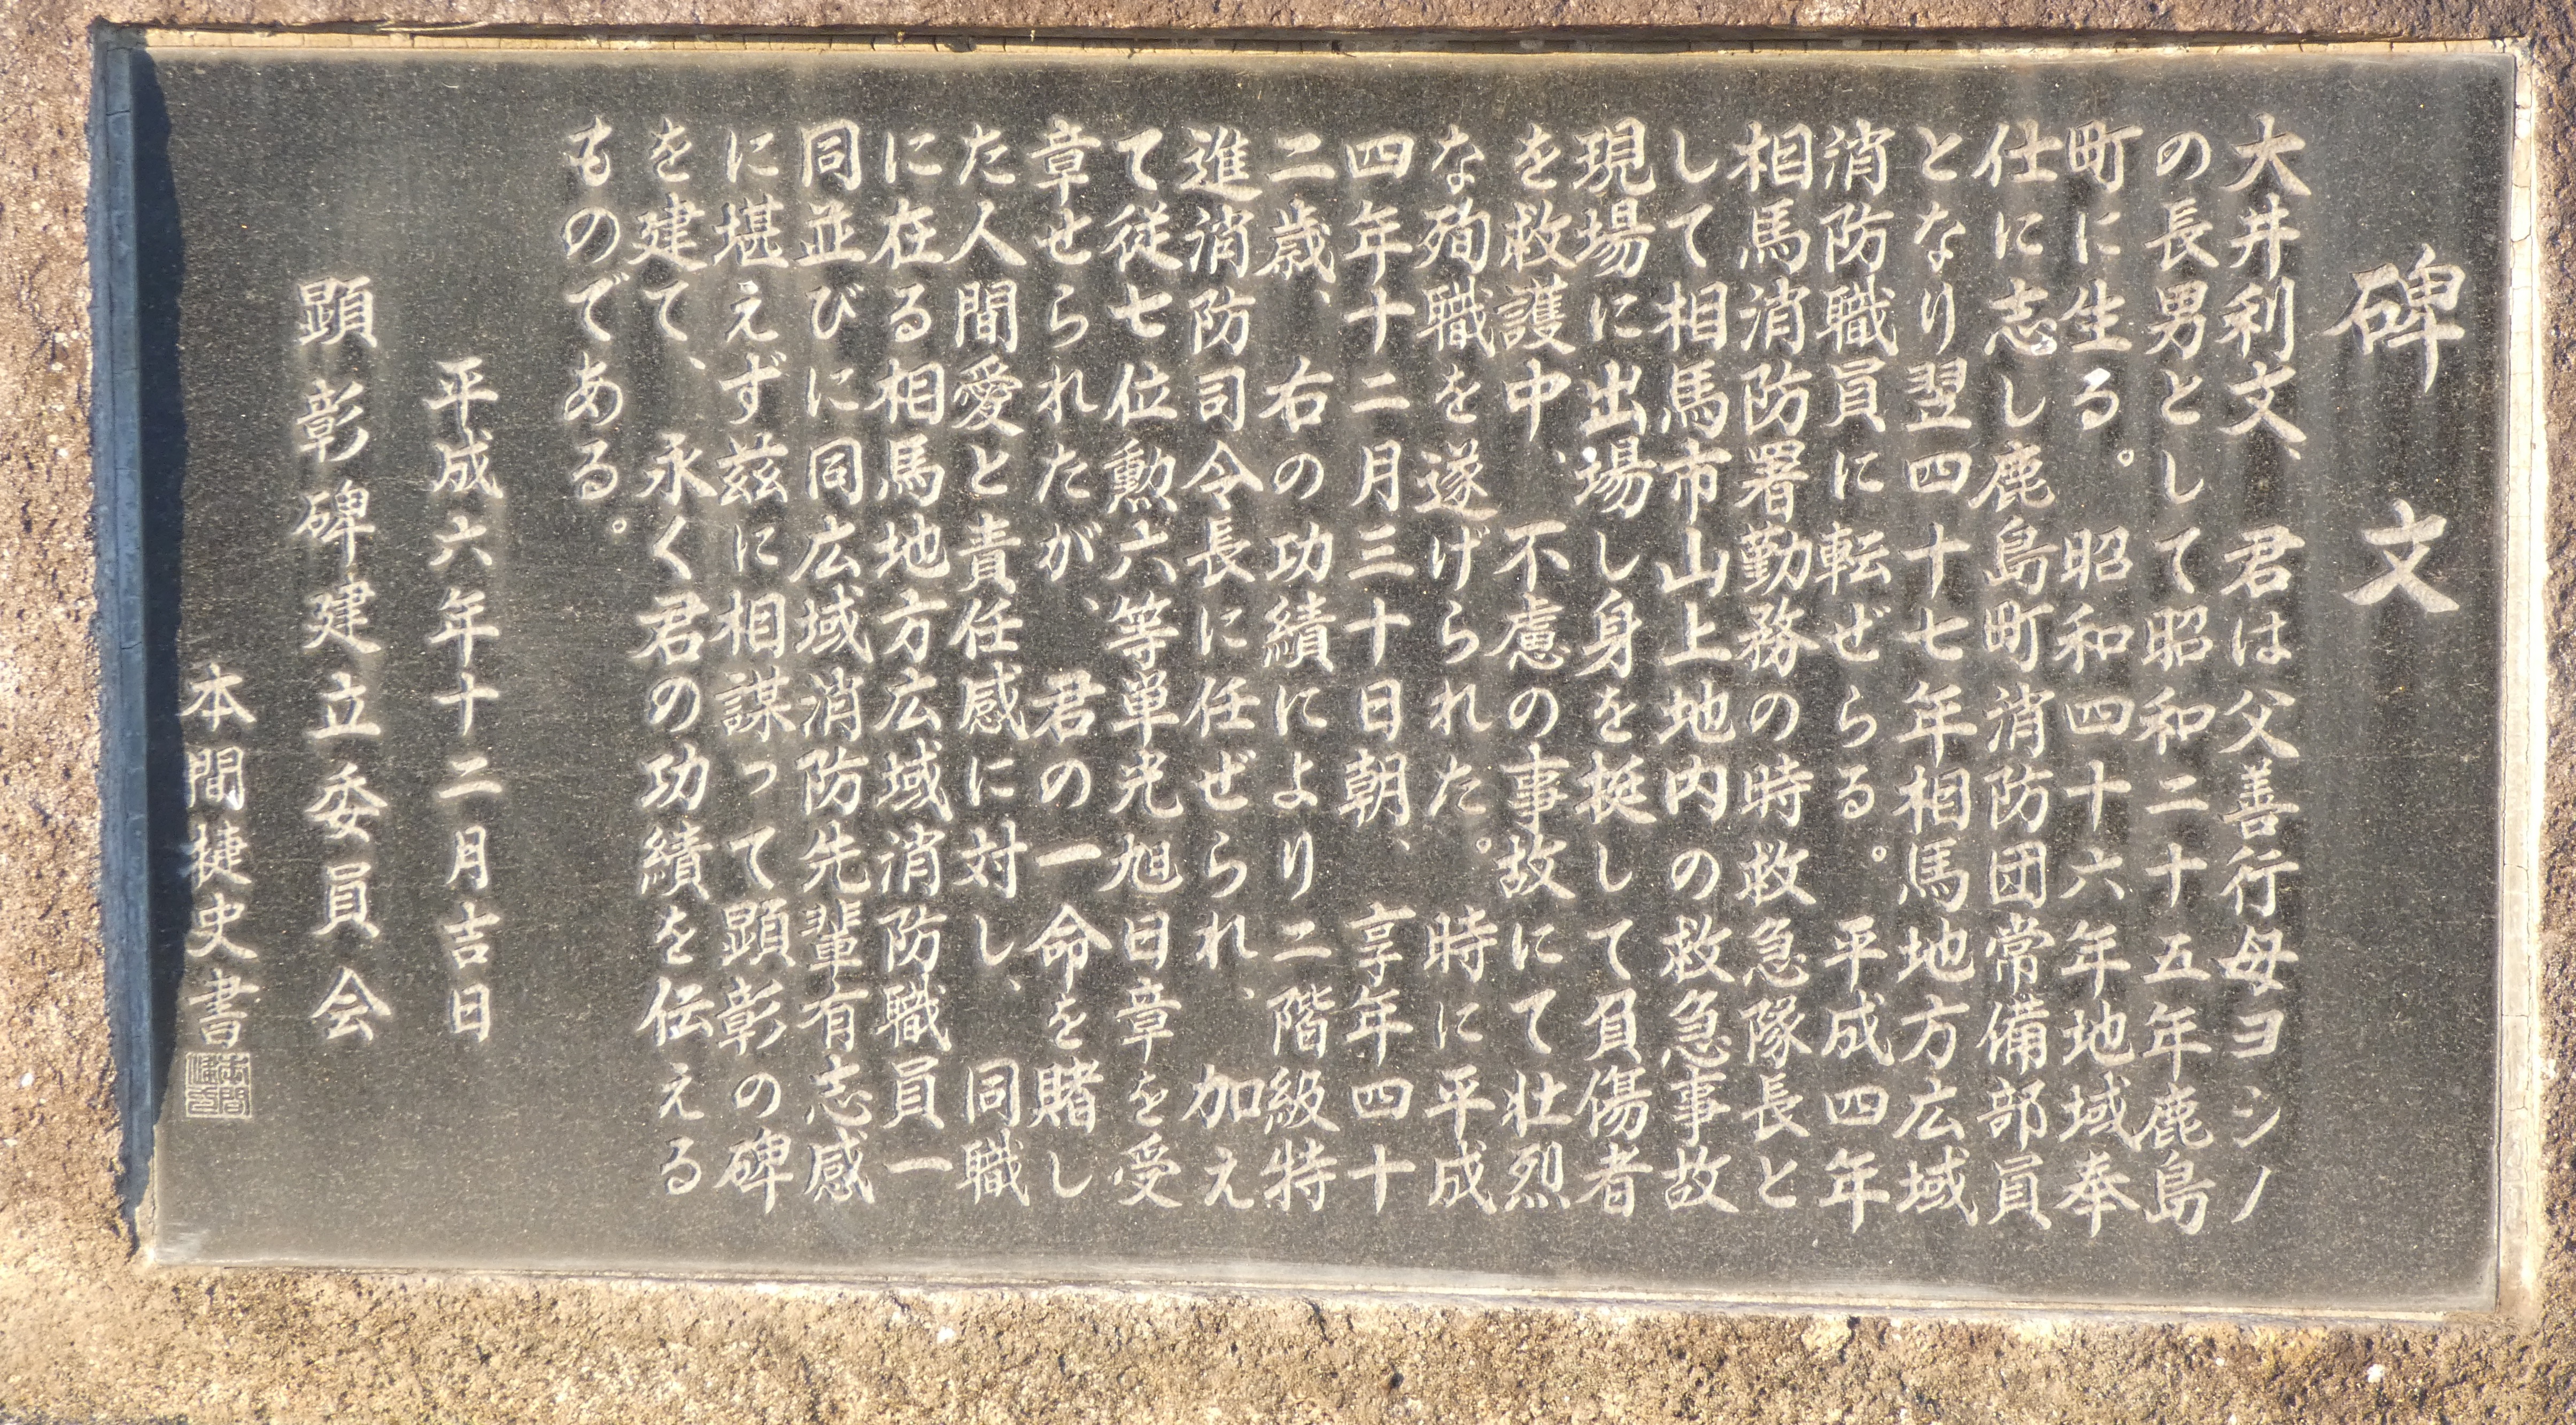 碑文
大井利文、君は父善行母ヨシノ
の長男として昭和二十五年鹿島
町に生る。昭和四十六年地域奉
仕に志し鹿島町消防団常備部員
となり翌四十七年相馬地方広域
消防職員に転ぜらる。平成四年
相馬消防署勤務の時救急隊長と
して相馬市山上地内の救急事故
現場に出場し身を挺して負傷者
を救護中、不慮の事故にて壮烈
な殉職を遂げられた。時に平成
四年十二月三十日朝、享年四十
二歳、右の功績により二階級特
進消防司令長に任ぜられ、加え
て従七位勲六等単光旭日章を受
章せられたが、君の一命を賭し
た人間愛と責任感に対し、同職
に在る相馬地方広域消防職員一
同並びに同広域消防先輩有志感
に堪えず茲に相謀って顕彰の碑
を建て、永く君の功績を伝える
ものである。
平成六年十二月吉日
顕彰碑建立委員会
本間捷史書